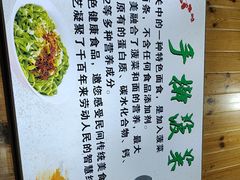 手擀菠菜
关中的一种特色面食,是加入菠菜
条,不含任何食品添加剂。
美融合了菠菜和面的营养,最大
原有的蛋白质、碳水化合物、钙、
2等多种营养成分。
色健康食品,邀您感受民间传统美食
艺凝聚了百年来劳动人民的智慧